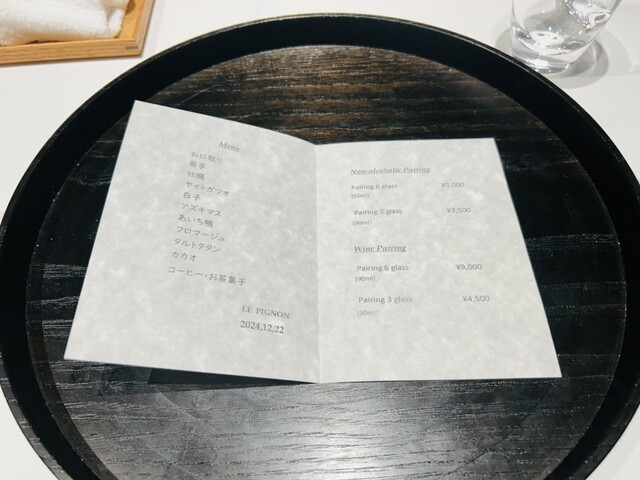 Menu
お口取り
菊芋
牡蠣
ヤイトガツオ
白子
アズキマス
あいち鴨
フロマージュ
タルトタタン
カカオ
コーヒー・お茶菓子
LE PIGNON
2024,12,22
Non-alcoholic Pairing
Pairing 6 glass ¥5,000
(60ml)
Pairing 3 glass ¥3,500
(90ml)
Wine Pairing
Pairing 6 glass ¥9,000
(90ml)
Pairing 3 glass ¥4,500
(90ml)